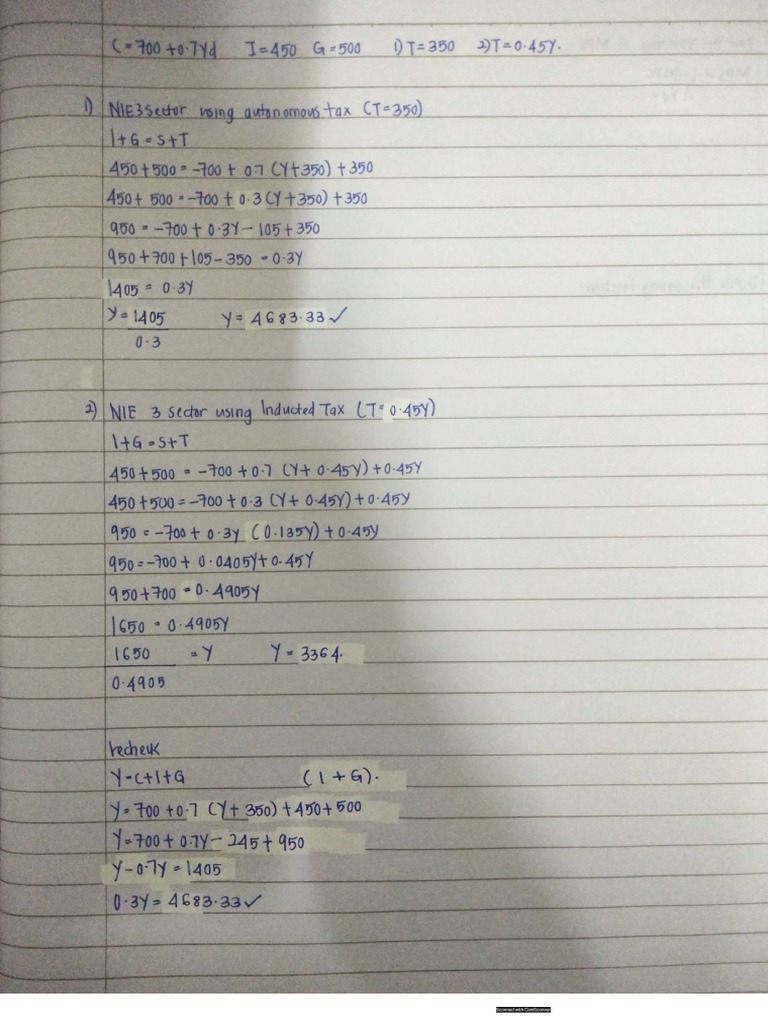 C=700+0.7Yd I=450 G=500 1) T=350 2) T=0.45Y.
1) NIE 3 sector using autonomous tax (T=350)
I+G=S+T
450+500=-700+0.7(Y+350)+350
450+500=-700+0.3(Y+350)+350
950=-700+0.3Y-105+350
950+700+105-350=0.3Y
1405=0.3Y
Y=1405 Y=4683.33✓
0.3
2) NIE 3 sector using Inducted Tax (T=0.45Y)
I+G=S+T
450+500=-700+0.7(Y+0.45Y)+0.45Y
450+500=-700+0.3(Y+0.45Y)+0.45Y
950=-700+0.3y(0.135Y)+0.45Y
950=-700+0.0405Y+0.45Y
950+700=0.4905Y
1650=0.4905Y
1650 =Y Y=3364.
0.4905
recheck
Y=C+I+G (I+G).
Y=700+0.7(Y+350)+450+500
Y=700+0.7Y-245+950
Y-0.7Y=1405
0.3Y=4683.33✓
Scanned with CamScanner